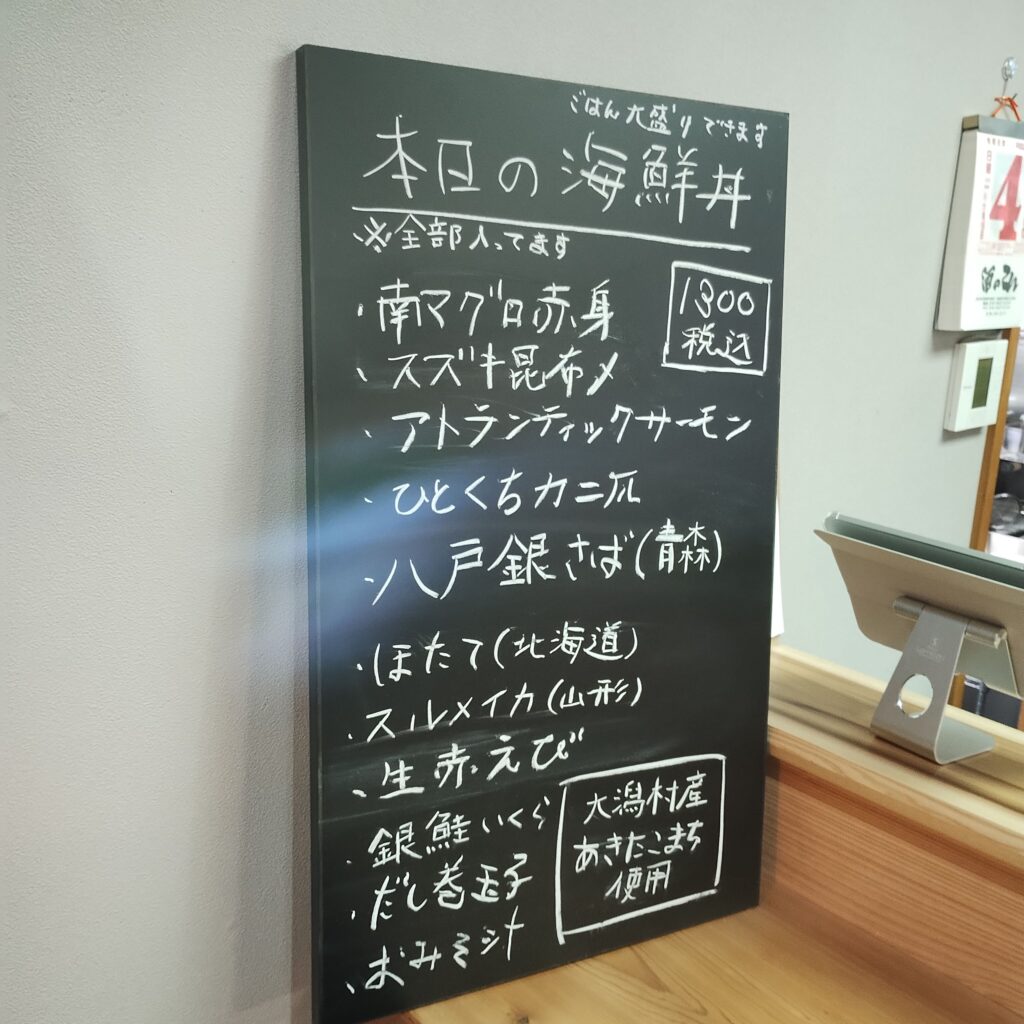 ごはん大盛りできます
本日の海鮮丼
※全部入ってます
1300
税込
・南マグロ赤身
・スズキ昆布〆
・アトランティックサーモン
・ひとくちカニ爪
・八戸銀さば(青森)
・ほたて(北海道)
・スルメイカ(山形)
・生赤えび
・銀鮭いくら
・だし巻玉子
・おみそ汁
大潟村産
あきたこまち
使用
4